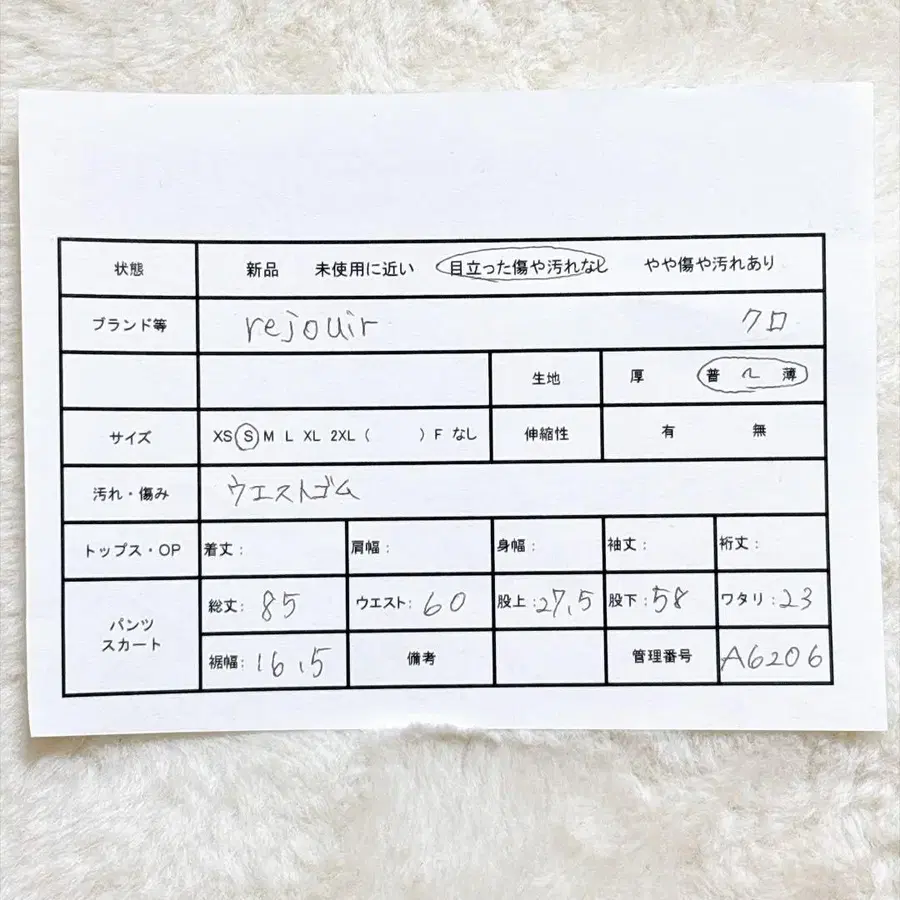 状態 新品 未使用に近い 目立った傷や汚れなし やや傷や汚れあり
ブランド等 rejouir クロ
生地 厚 普 〜 薄
サイズ XS S M L XL 2XL ( ) F なし 伸縮性 有 無
汚れ・傷み ウエストゴム
トップス・OP 着丈: 肩幅: 身幅: 袖丈: 裄丈:
パンツ スカート 総丈: 85 ウエスト: 60 股上: 27,5 股下: 58 ワタリ: 23
裾幅: 16,5 備考 管理番号 A6206